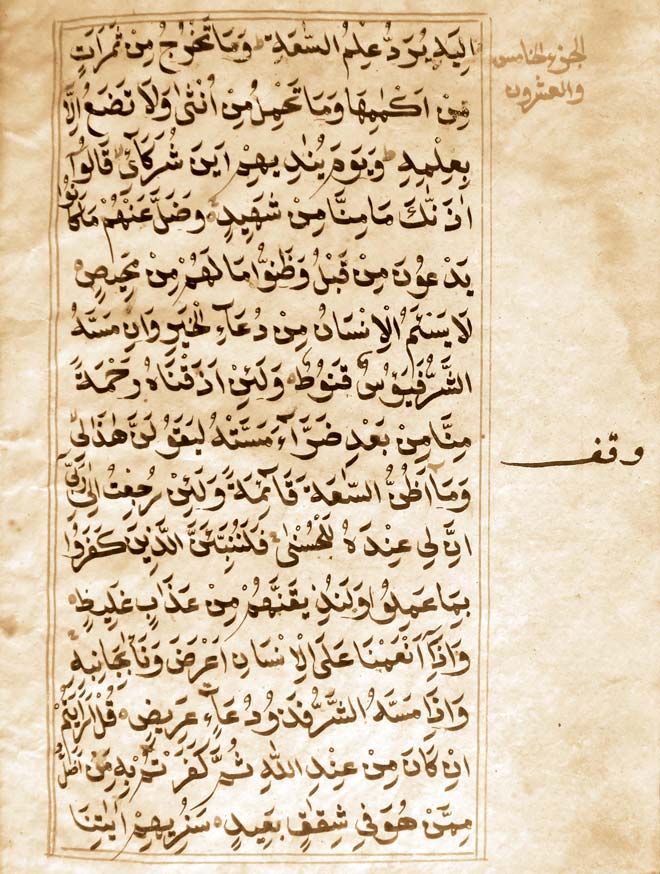 اِلَيْهِ يُرَدُّ عِلْمُ السَّعَةِ وَمَا تَخْرُجُ مِنْ ثَمَرَاتٍ
الجزء الخامس
والعشرون
مِنْ اَكْمَمِهَا وَمَا تَحْمِلُ مِنْ اُنْثٰى وَلَا تَضَعُ اِلَّا
بِعِلْمِهِ وَيَوْمَ يُنَادِيهِمْ اَيْنَ شُرَكَآئِ قَالُوٓا
اٰذَنّٰكَ مَا مِنَّا مِنْ شَهِيدٍ وَضَلَّ عَنْهُمْ مَا كَانُوا
يَدْعُونَ مِنْ قَبْلُ وَظَنُّوا مَا لَهُمْ مِنْ مَحِيصٍ
لَا يَسْئَمُ الْاِنْسَانُ مِنْ دُعَآءِ الْخَيْرِ وَاِنْ مَسَّهُ
الشَّرُّ فَيَؤُسٌ قَنُوطٌ وَلَئِنْ اَذَقْنَاهُ رَحْمَةً
مِنَّا مِنْ بَعْدِ ضَرَّآءَ مَسَّتْهُ لَيَقُولَنَّ هٰذَا لِي
وقف
وَمَآ اَظُنُّ السَّعَةَ قَآئِمَةً وَلَئِنْ رُجِعْتُ اِلٰى رَبِّي
اِنَّ لِي عِنْدَهُ لَلْحُسْنٰى فَلَنُنَبِّئَنَّ الَّذِينَ كَفَرُوا
بِمَا عَمِلُوا وَلَنُذِيقَنَّهُمْ مِنْ عَذَابٍ غَلِيظٍ
وَاِذَآ اَنْعَمْنَا عَلَى الْاِنْسَانِ اَعْرَضَ وَنَاٰ بِجَانِبِهِ
وَاِذَا مَسَّهُ الشَّرُّ فَذُو دُعَآءٍ عَرِيضٍ قُلْ اَرَاَيْتُمْ
اِنْ كَانَ مِنْ عِنْدِ اللّٰهِ ثُمَّ كَفَرْتُمْ بِهِ مَنْ اَضَلُّ
مِمَّنْ هُوَ فِي شِقَاقٍ بَعِيدٍ سَنُرِيهِمْ اٰيٰتِنَا